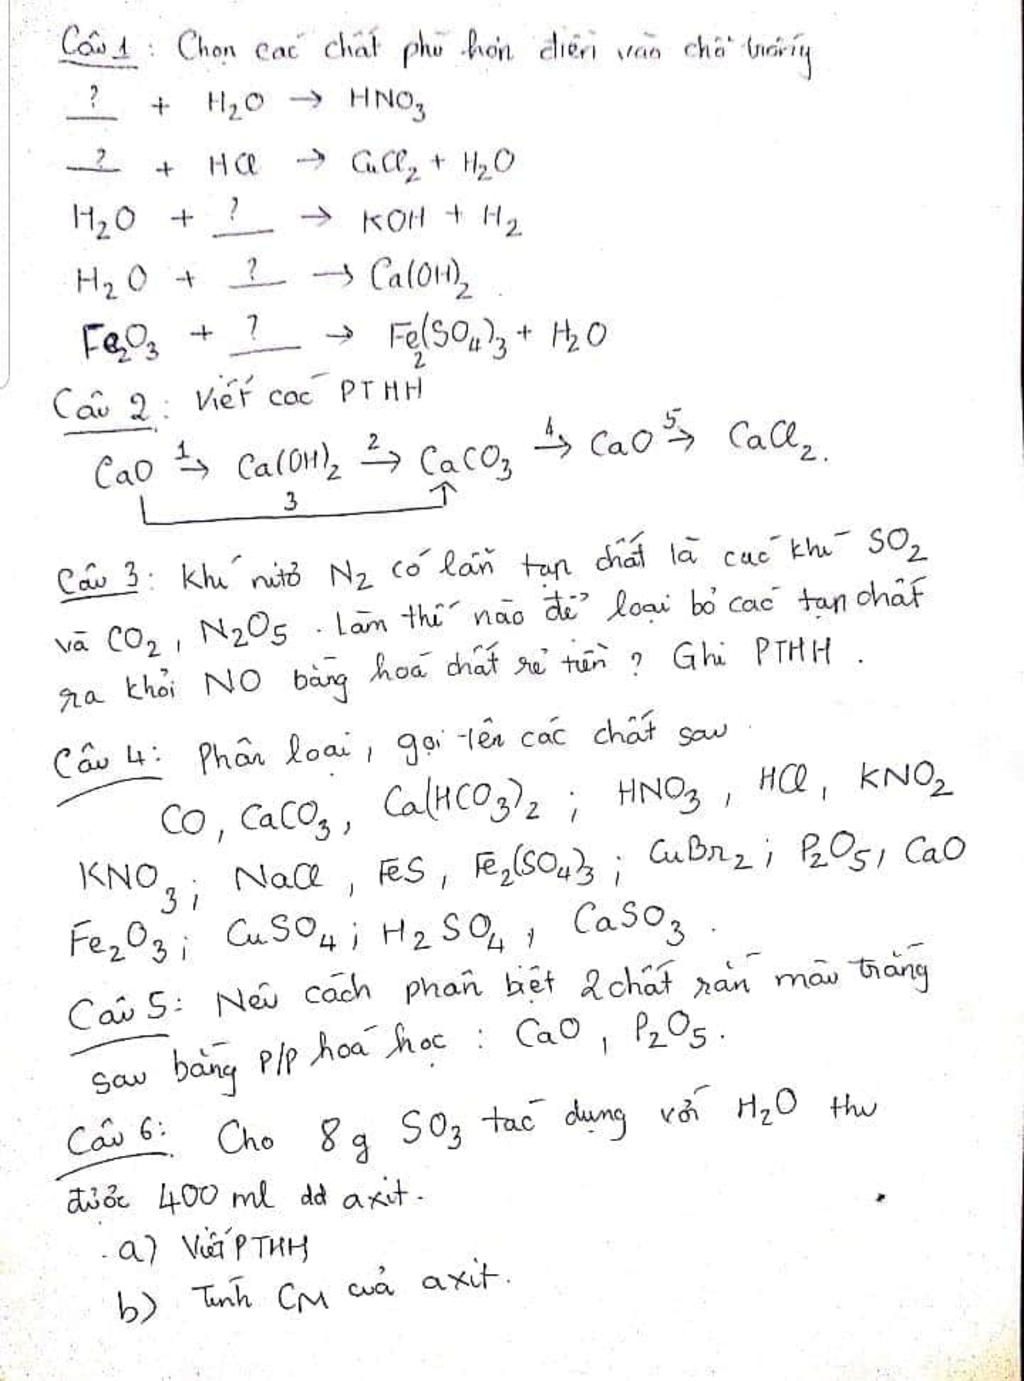 Câu 1: Chọn các chất phù hợp điền vào chỗ trống
? + H₂O → HNO₃
? + HCl → CuCl₂ + H₂O
H₂O + ? → KOH + H₂
H₂O + ? → Ca(OH)₂
Fe₂O₃ + ? → Fe₂(SO₄)₃ + H₂O
Câu 2: Viết các PTHH
CaO 1→ Ca(OH)₂ 2→ CaCO₃ 4→ CaO 5→ CaCl₂.
3
Câu 3: Khí nitơ N₂ có lẫn tạp chất là các khí SO₂
và CO₂, N₂O₅. Làm thế nào để loại bỏ các tạp chất
ra khỏi NO bằng hoá chất rẻ tiền? Ghi PTHH.
Câu 4: Phân loại, gọi tên các chất sau
CO, CaCO₃, Ca(HCO₃)₂; HNO₃, HCl, KNO₂
KNO₃; NaCl, FeS, Fe₂(SO₄)₃; CuBr₂; P₂O₅, CaO
Fe₂O₃; CuSO₄; H₂SO₄, CaSO₃.
Câu 5: Nêu cách phân biệt 2 chất rắn màu trắng
sau bằng P/P hoá học: CaO, P₂O₅.
Câu 6: Cho 8g SO₃ tác dụng với H₂O thu
được 400 ml dd axit.
a) Viết PTHH
b) Tính CM của axit.